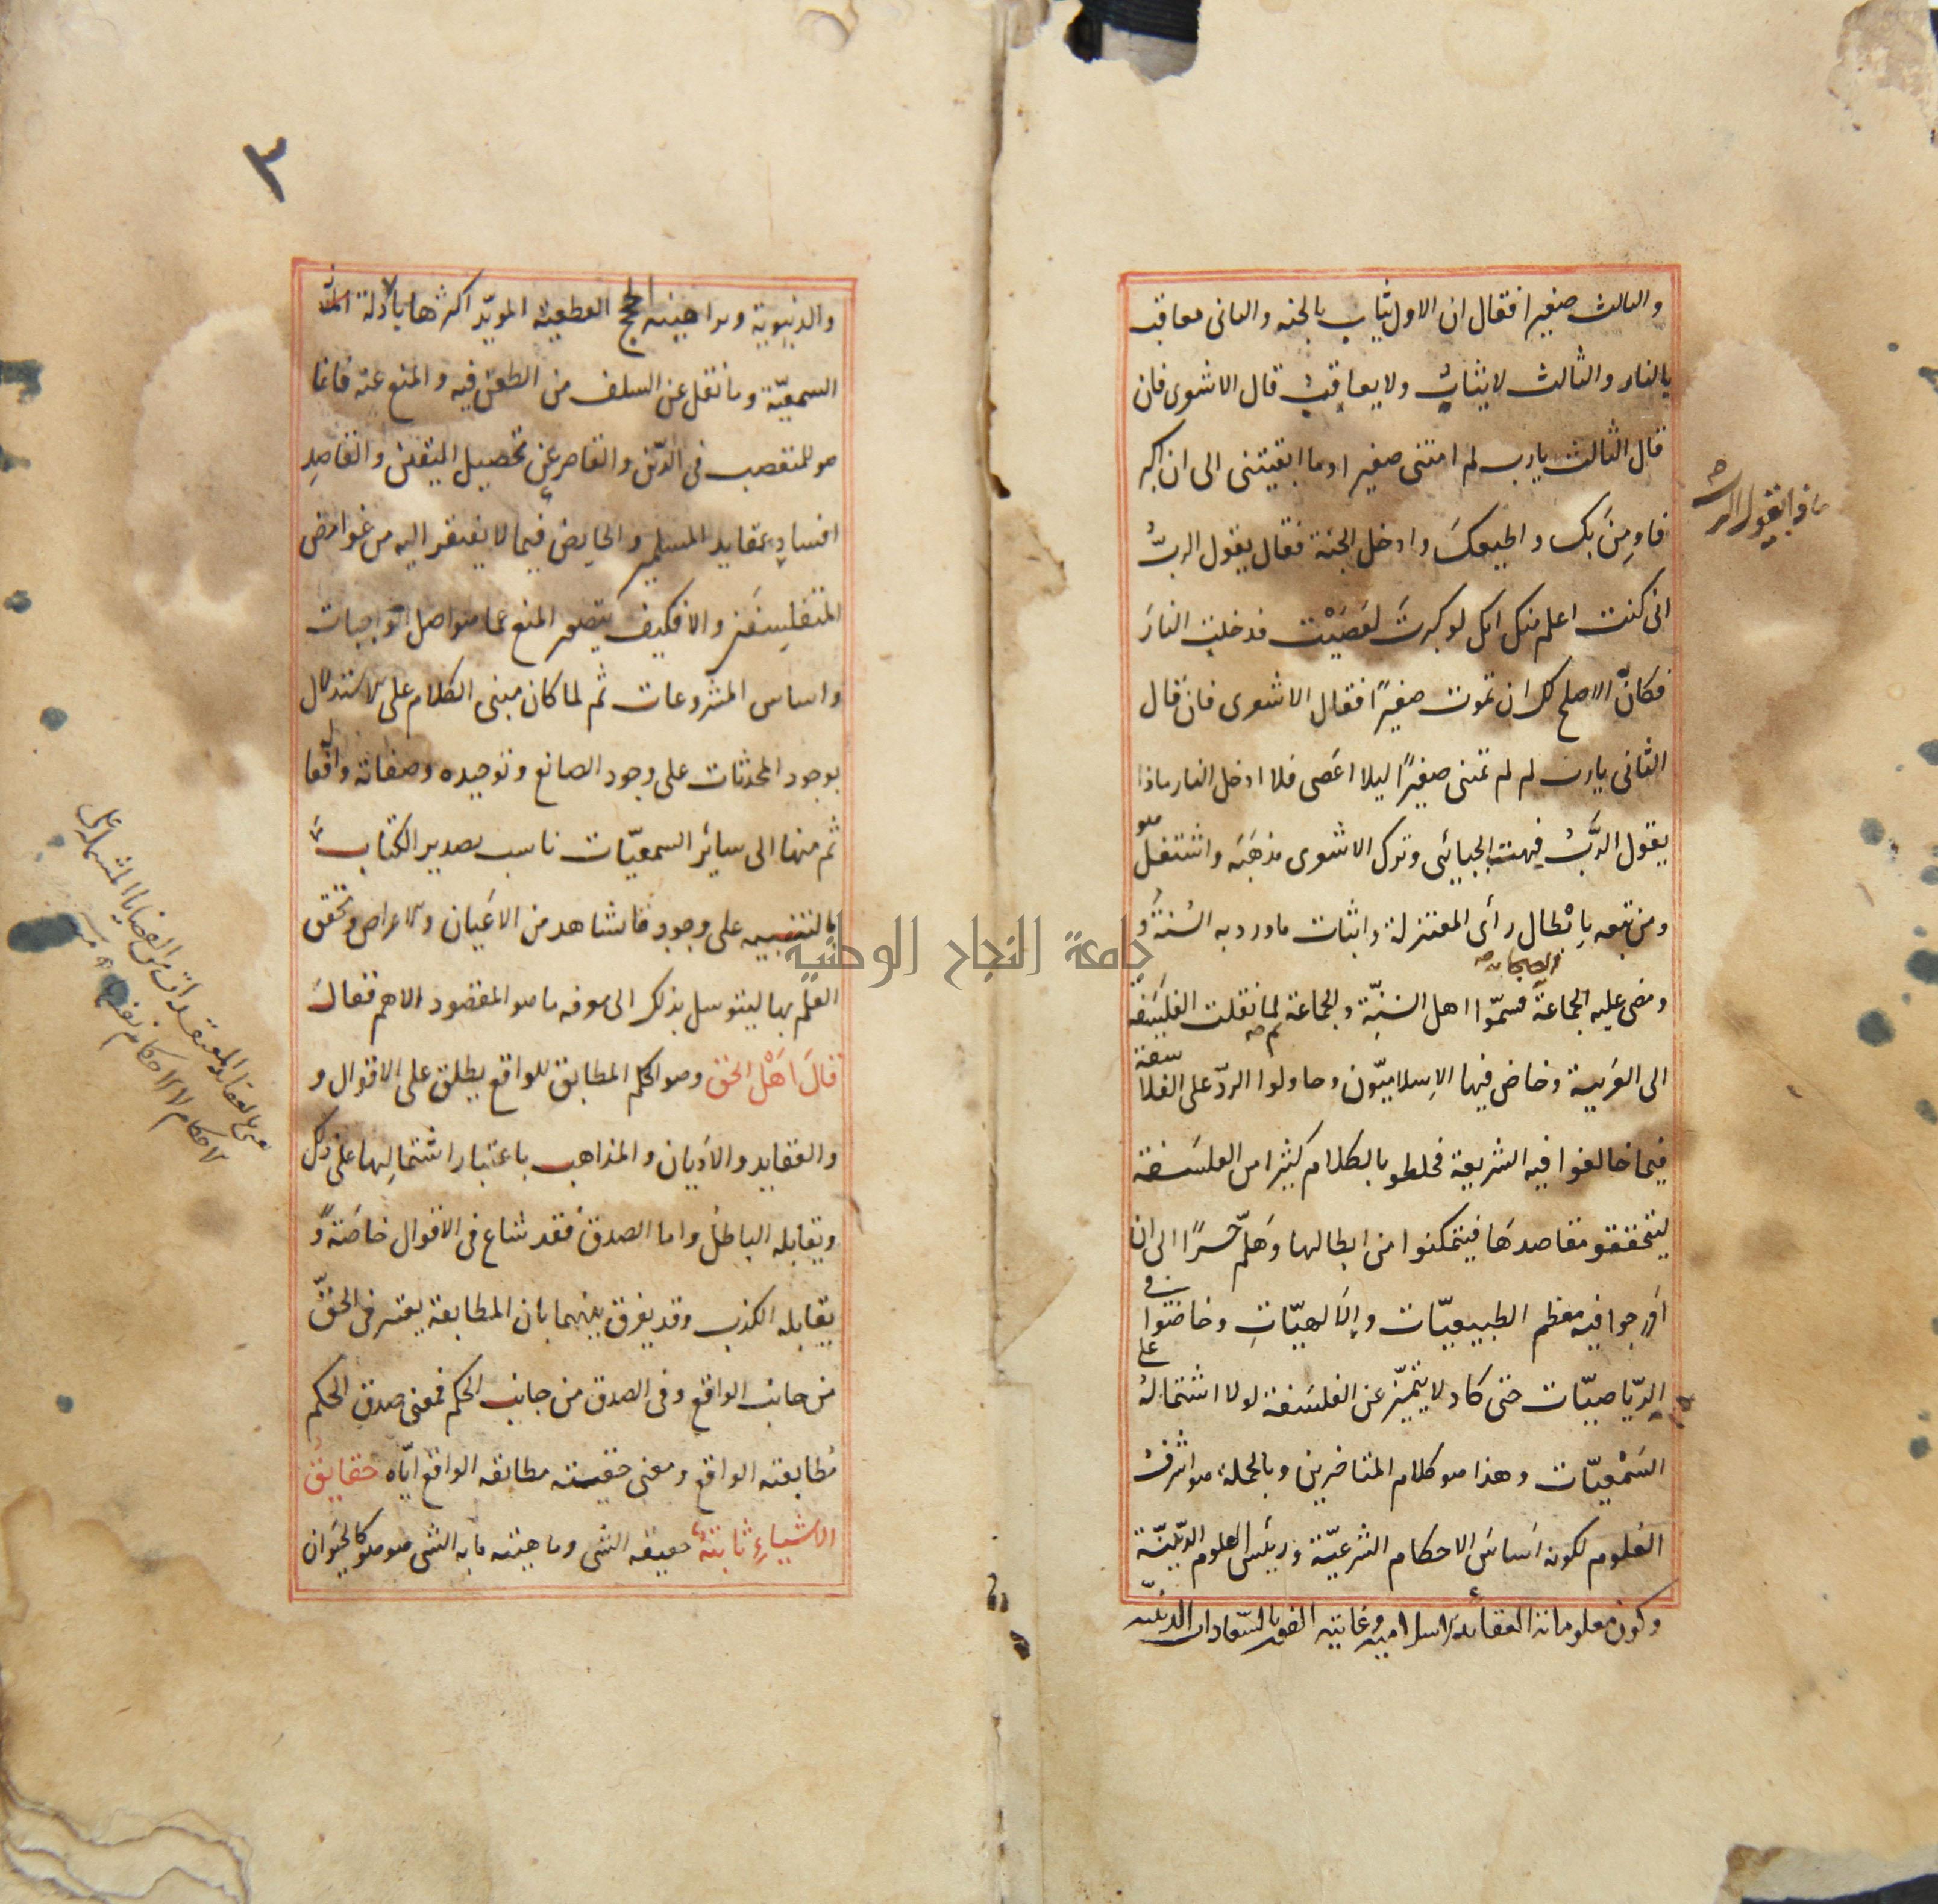 والثالث صغيرا فقال ان الاول يثاب بالجنة والثاني معاقب
بالنار والثالث لا يثاب ولا يعاقب قال الاشعرى فان
قال الثالث يارب لم امتنى صغيرا وما ابقيتنى الى ان اكبر
فاومن بك واطيعك وادخل الجنة فقال يقول الربّ
انى كنت اعلم منك انك لو كبرت لعصَيْت فدخلت النارَ
فكانّ الاصلح لك ان تموت صغيرًا فقال الاشعرى فان قال
الثانى يارب لم لم تمتنى صغيرًا ليلا اعصى فلا ادخل النار ماذا
يقول الرَّبُ فبهت الجبائى وترك الاشعرى مذهبَه واشتغل هو
ومن تبعه بِابْطال رأى المعتزلة واثبات ما ورد به السُنةُ و
ومضى عليه الجماعة فسمّوا اهل السُنّة والجماعة ثم لما نقلت الفلسَفة
الصحابة
الى العَربية وخاض فيها الاِسلاميّون وحاولوا الردّ على الفلاسفة
فيما خالفوا فيه الشريعة فخلطو بالكلام كثيرا من الفلسَفة
ليتحققو مقاصدهَا فيتمكنوا من ابطالها وَهَلمّ جّرًا الى ان
اَدرجوا فيه معظم الطبيعيّات والاَلهيّاتِ وخاضوا فى
الرّياضيّات حتى كاد لا يتميّز عن الفلسَفة لولا اشتمالهُ على
السَمْعيّات وهذا هو كلام المتاخرين وبالجملة هو اشرفُ
العُلوم لكونه اَساسَ الاحكام الشرعيّة ورئيسَ العلوم الدّينيّة
وكون معلوماته العقائد الاسلامية وغايته الفوز بالسّعادات الدينيّه
ماذا يقول الرب
٣
والدنيوية وبراهينه الحجج القطعية المويّد اكثرها بالادلة
السمعيّة وما نقل عن السلف من الطعن فيه والمنع عنه فانما
هو للمتعصب فى الدّين والقاصر عن تحصيل اليقين والقاصِدِ
افسادِ عقايد المسلمين والخايض فيما لا يفتقر اليه من غوامض
المتفلسِفَين والا فكيف يتصور المنع عما هو اصل الواجبات
واساس المشروعات ثم لما كان مبنى الكلام على الاستدلال
بوجود المحدثات على وجود الصانع وتوحيده وصفاته وافعاله
ثم منها الى سائر السمعيّات ناسب تصدير الكتاب
بالتنبيه على وجود ما نشاهد من الاعَيان والاعراض وتحقق
العلم بها ليتوسل بذلك الى معرفة ما هو المقصود الاهم فقال
قالَ اَهْل الحق وهو الحكم المطابق للواقع يطلق على الاقوال و
والعقايد والاَديان والمذاهب باعتبار اشتمالِها على ذلك
ويقابله الباطل واما الصدق فقد شاع فى الاقوال خاصَةً و
يقابله الكذب وقد يفرق بينهما بان المطابقة يعتبر فى الحقّ
من جانب الواقع وفى الصدق من جانب الحكم فمعنى صدق الحكم
مُطابقته الواقع ومعنى حقيته مطابقه الواقع ايّاه حقايقُ
الاشياءِ ثابتةٌ حقيقه الشى وماهيته ما به الشى هو هو كالحيَوان